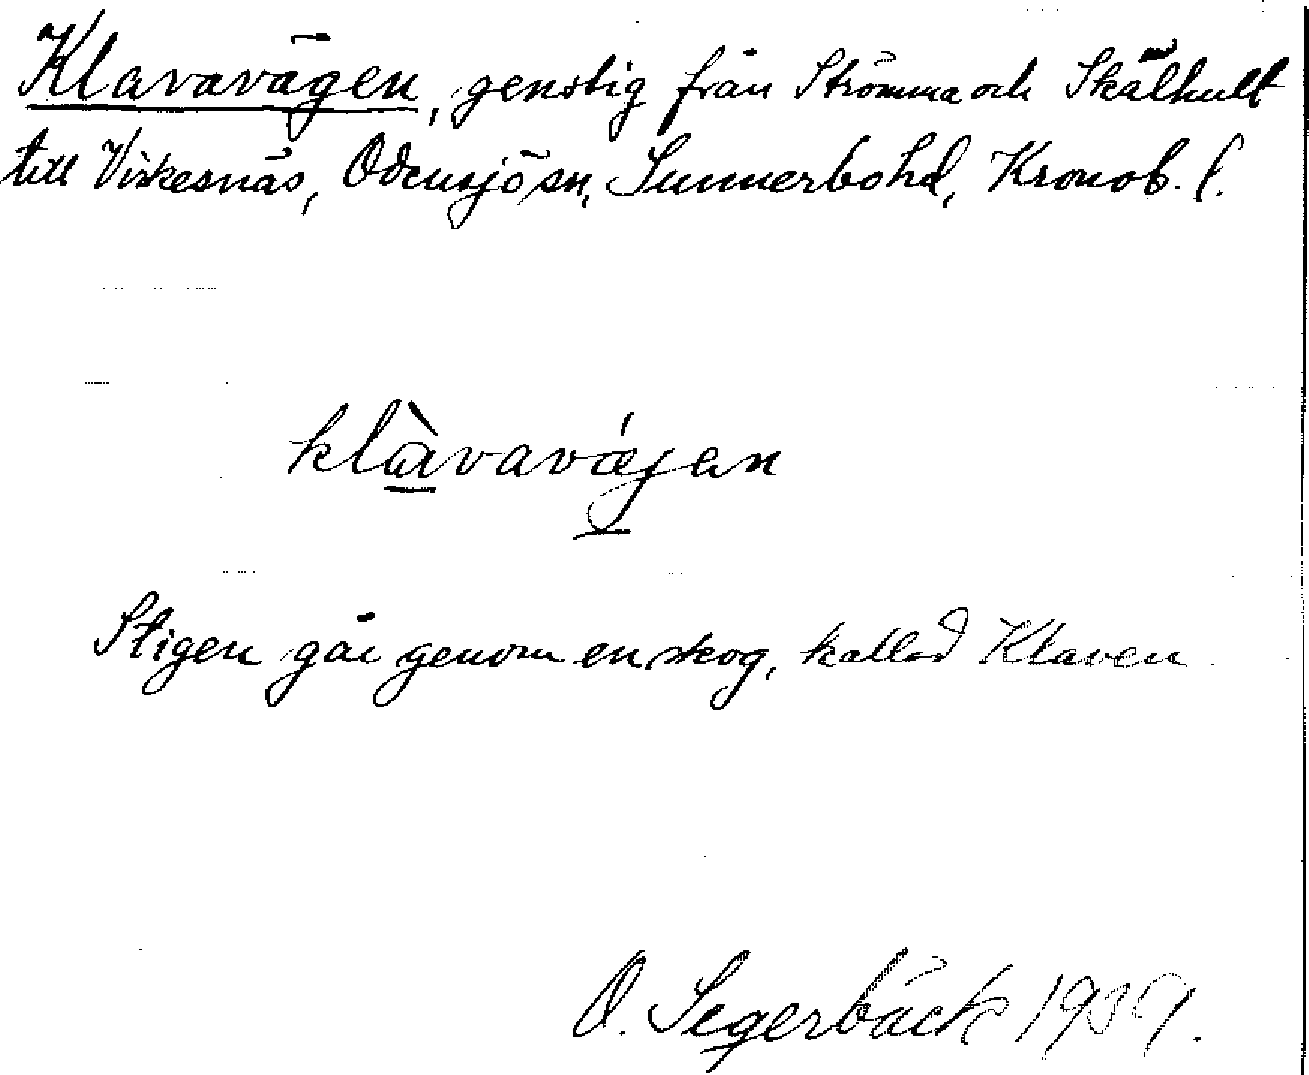 Klavavägen, genstig från Strömma och Skälhult
till Viskesnäs, Odensjö sn, Sunnerbo hd, Kronob. l.
klàvavǽjen
Stigen går genom en skog, kallad Klaven
O. Segerbäck 1939.